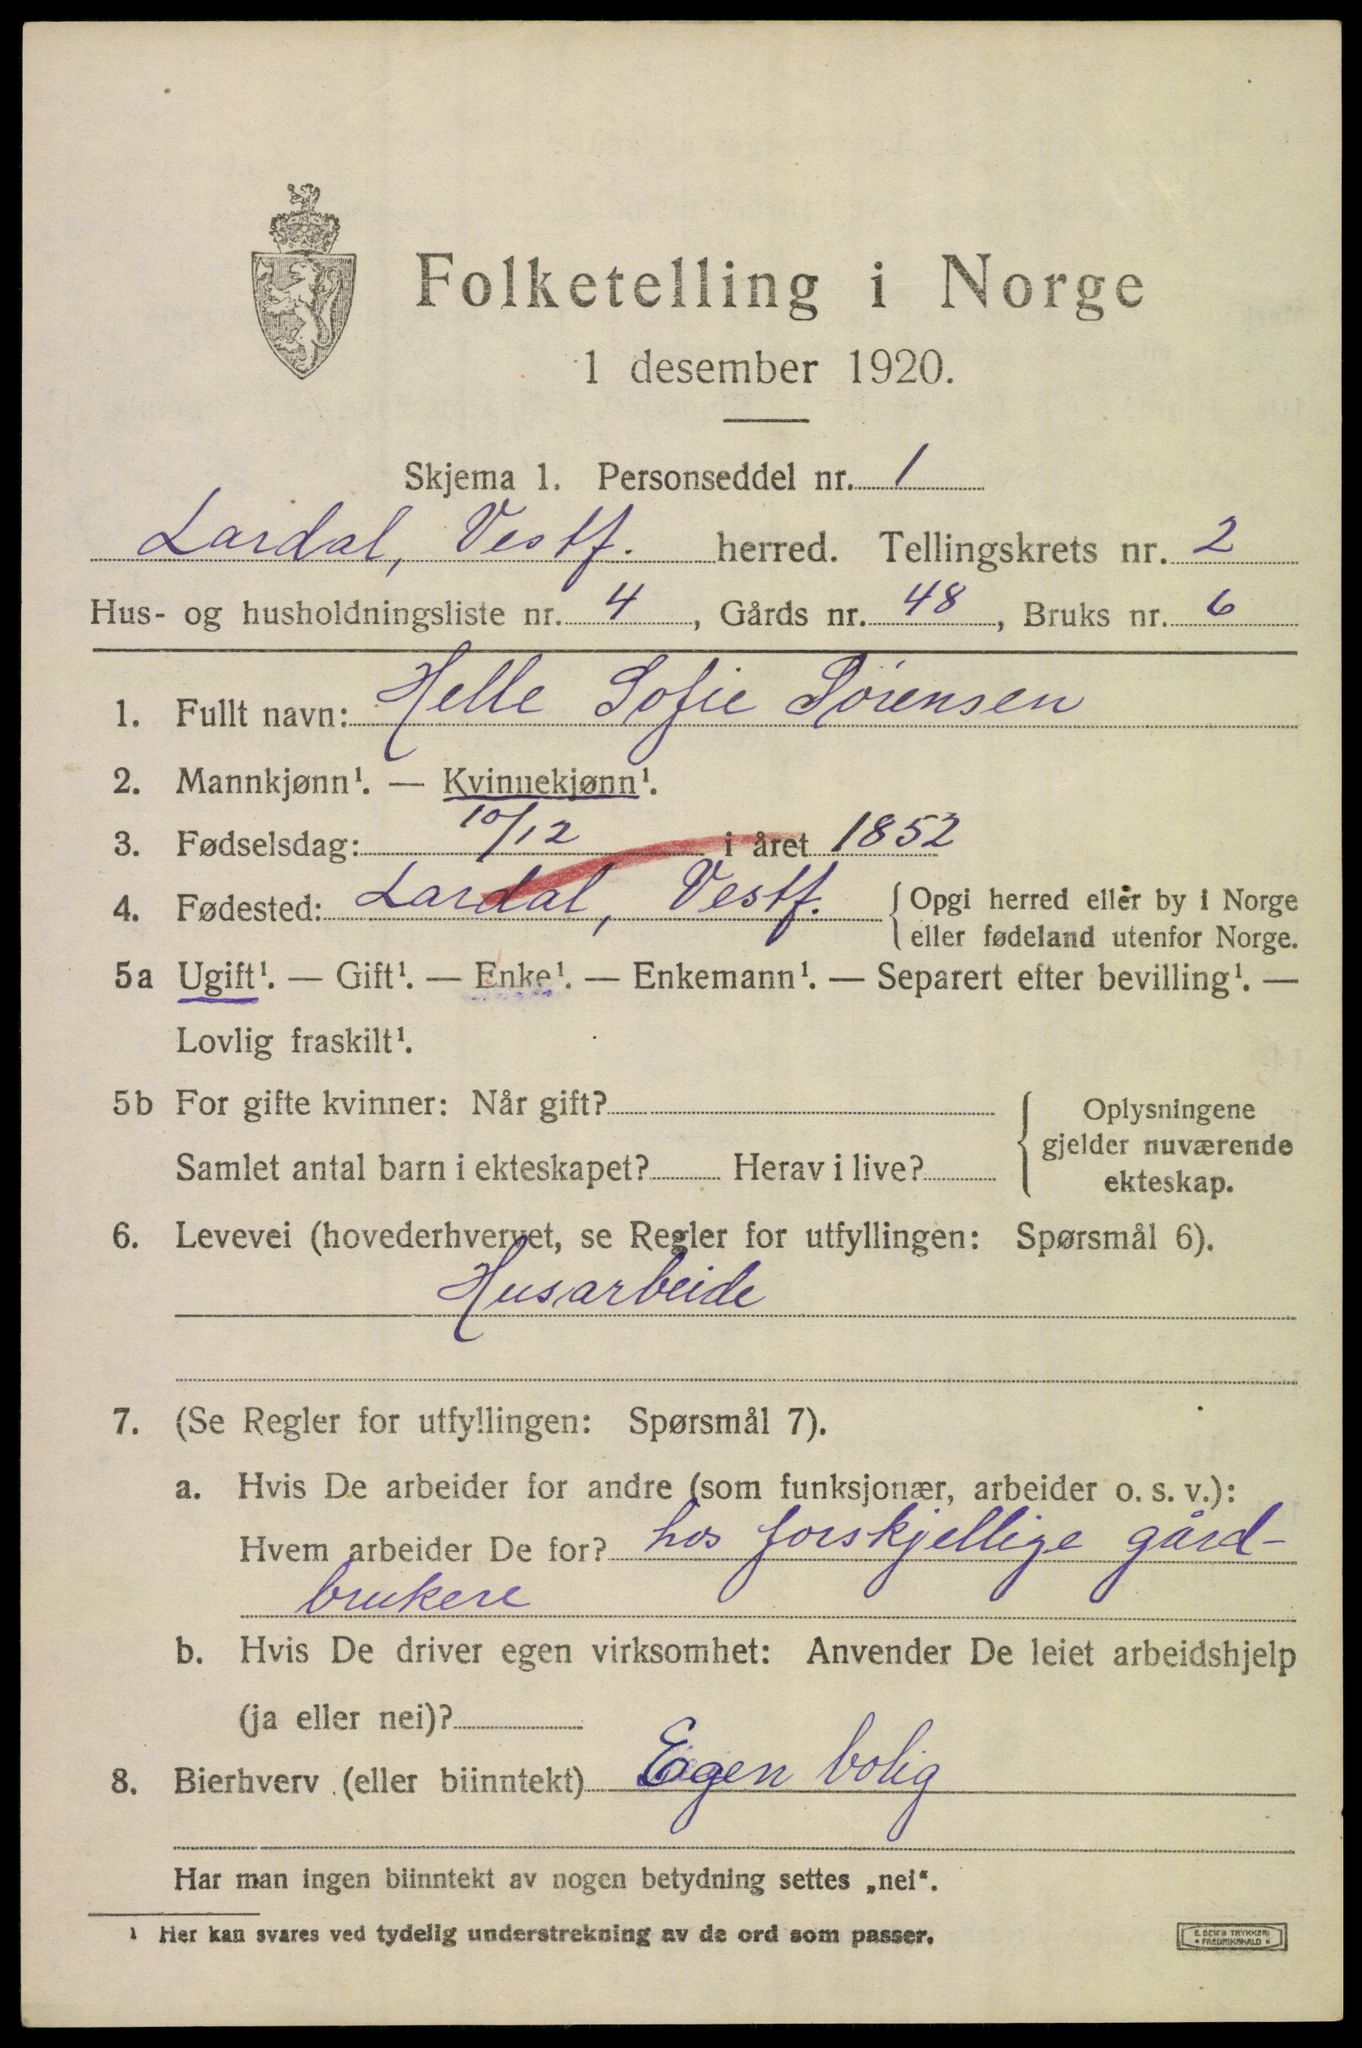 Folketelling i Norge
1 desember 1920.
Skjema 1. Personseddel nr. 1
Lardal, Vestf. herred. Tellingskrets nr. 2
Hus- og husholdningsliste nr. 4, Gårds nr. 48, Bruks nr. 6
1. Fullt navn: Helle Sofie Sørensen
2. Mannkjønn¹. — Kvinnekjønn¹.
3. Fødselsdag: 10/12 i året 1852
4. Fødested: Lardal, Vestf. { Opgi herred eller by i Norge
eller fødeland utenfor Norge.
5a Ugift¹. — Gift¹. — Enke¹. — Enkemann¹. — Separert efter bevilling¹. —
Lovlig fraskilt¹.
5b For gifte kvinner: Når gift?
Samlet antal barn i ekteskapet? Herav i live?
{ Oplysningene
gjelder nuværende
ekteskap.
6. Levevei (hovederhvervet, se Regler for utfyllingen: Spørsmål 6).
Husarbeide
7. (Se Regler for utfyllingen: Spørsmål 7).
a. Hvis De arbeider for andre (som funksjonær, arbeider o. s. v.):
Hvem arbeider De for? hos forskjellige gård-
brukere
b. Hvis De driver egen virksomhet: Anvender De leiet arbeidshjelp
(ja eller nei)?
8. Bierhverv (eller biinntekt) Egen bolig
Har man ingen biinntekt av nogen betydning settes „nei“.
¹ Her kan svares ved tydelig understrekning av de ord som passer.
E. SEM'S TRYKKERI
FREDRIKSHALD